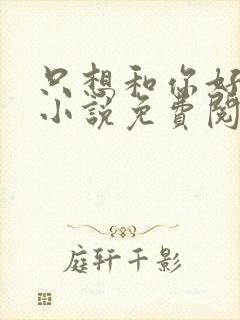 只想和你好
小說免費閱
庭轩千影